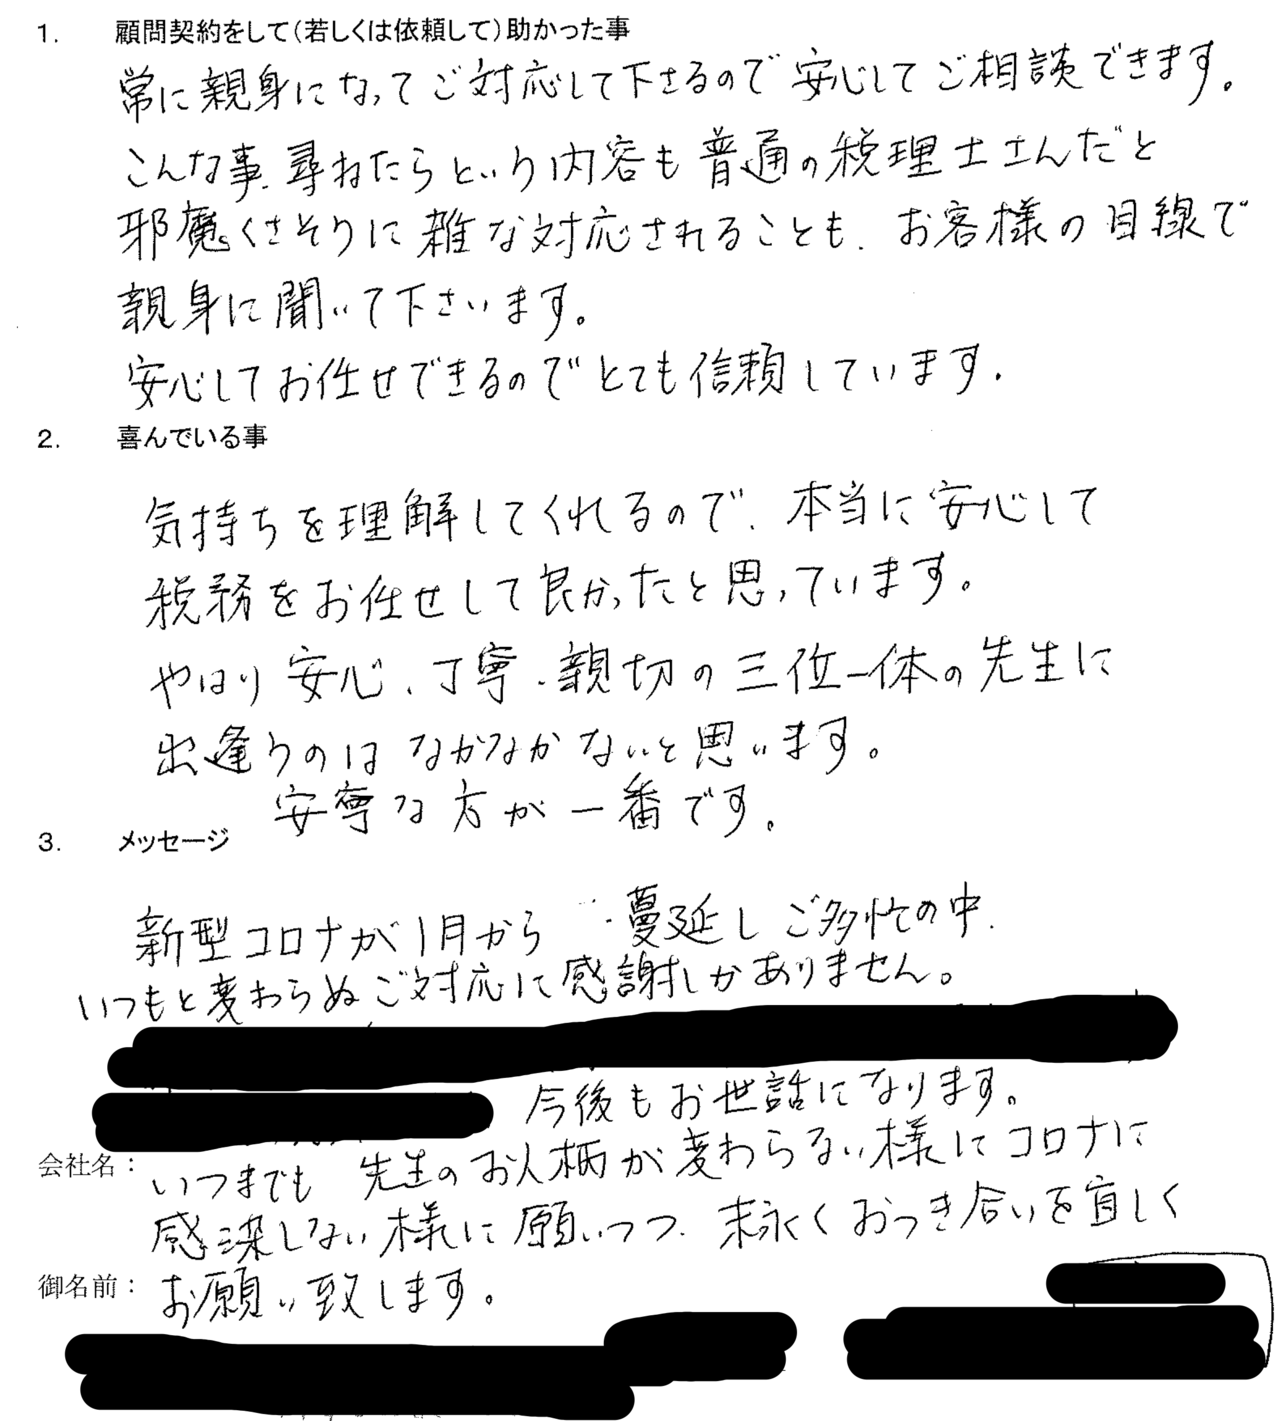 1. 顧問契約をして(若しくは依頼して)助かった事
常に親身になってご対応して下さるので安心してご相談できます。
こんな事、尋ねたらという内容も普通の税理士さんだと
邪魔くさそうに雑な対応されることも、お客様の目線で
親身に聞いて下さいます。
安心してお任せできるのでとても信頼しています.
2. 喜んでいる事
気持ちを理解してくれるので、本当に安心して
税務をお任せして良かったと思っています。
やはり安心、丁寧、親切の三位一体の先生に
出逢うのはなかなかないと思います。
安寧な方が一番です。
3. メッセージ
新型コロナが1月から 蔓延しご多忙の中、
いつもと変わらぬご対応に感謝しかありません。
今後もお世話になります。
会社名: いつまでも 先生のお人柄が変わらない様にコロナに
感染しない様に願いつつ、末永くおつき合いを宜しく
御名前: お願い致します。